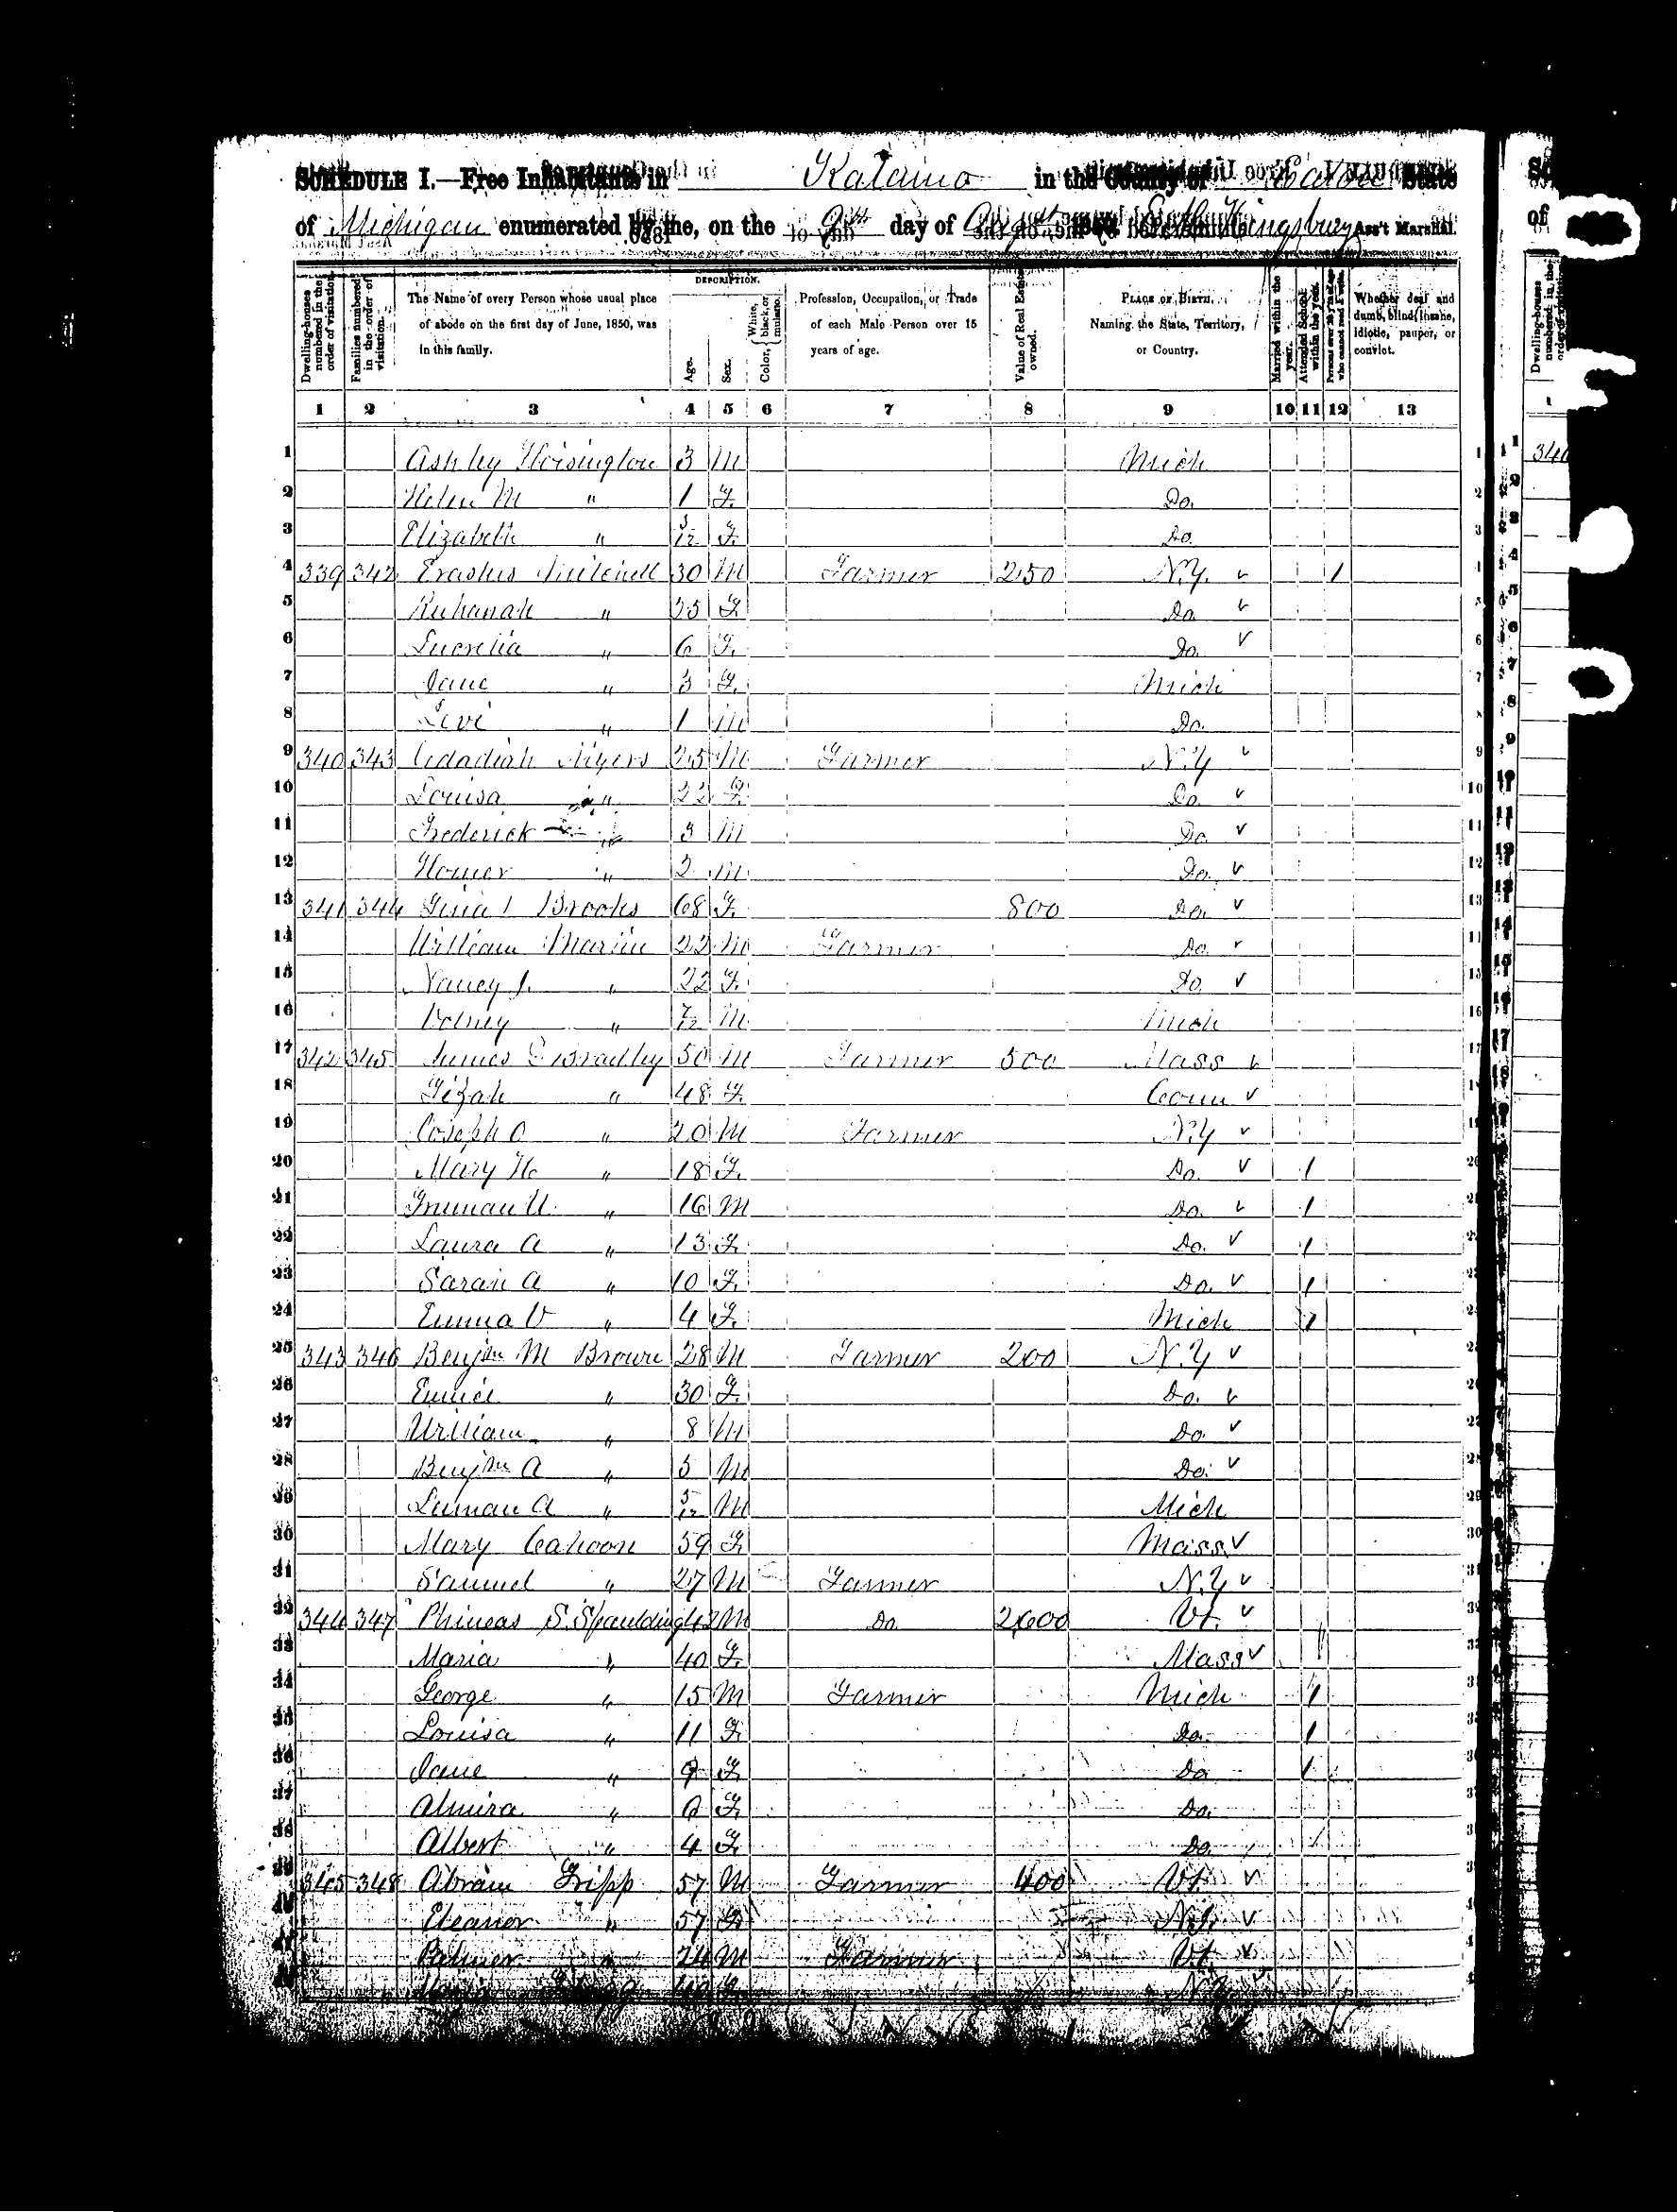 SCHEDULE I.—Free Inhabitants in Kalamo in the County of Eaton State
of Michigan enumerated by me, on the 9th day of August 1850. Kingsbury Ass't Marshal.
Dwelling-houses numbered in the order of visitation.
Families numbered in the order of visitation.
The Name of every Person whose usual place of abode on the first day of June, 1850, was in this family.
DESCRIPTION.
Age.
Sex.
Color, White, black, or mulatto.
Profession, Occupation, or Trade of each Male Person over 15 years of age.
Value of Real Estate owned.
PLACE OF BIRTH. Naming the State, Territory, or Country.
Married within the year.
Attended School within the year.
Persons over 20 y'rs of age who cannot read & write.
Whether deaf and dumb, blind, insane, idiotic, pauper, or convict.
1 2 3 4 5 6 7 8 9 10 11 12 13
1 Ashley Hoisington 3 M Mich
2 Helen M " 1 F. Do.
3 Elizabeth " F. Do.
4 339 342 Erastus 30 M Farmer 250 N.Y. 1
5 Ruhanah " 25 F Do.
6 Lucretia " 6 F. Do.
7 Jane " 3 F. Mich
8 Levi " 1 M Do.
9 340 343 Myers 25 M Farmer N.Y
10 Louisa " 22 F. Do.
11 Frederick " 3 M Do.
12 Homer " 2 M Do.
13 341 344 Brooks 68 F. 800 Do.
14 William Martin 22 M Farmer Do.
15 Nancy J. " 22 F. Do.
16 Volney " 7/12 M Mich
17 342 345 James Bradley 50 M Farmer 500 Mass
18 " 48 F. Conn
19 Joseph O " 20 M Farmer N.Y
20 Mary H " 18 F. Do. 1
21 Truman U. " 16 M Do. 1
22 Laura A " 13 F. Do. 1
23 Sarah A " 10 F. Do. 1
24 Emma V " 4 F. Mich 1
25 343 346 Benjm M Brown 28 M Farmer 200 N.Y
26 Eunice " 30 F. Do.
27 William " 8 M Do
28 Benjm A " 5 M Do.
29 Luman A " 5/12 M Mich
30 Mary Cahoon 59 F. Mass.
31 Samuel " 27 M Farmer N.Y
32 344 347 Phineas S. Spaulding 42 M Do. 2600 Vt.
33 Maria " 40 F. Mass
34 George " 15 M Farmer Mich 1
35 Louisa " 11 F. Do. 1
36 Jane " 9 F. Do 1
37 Almira " 6 F. Do.
38 Albert " 4 F. Do.
39 345 348 Abram Tripp 57 M Farmer 400 Vt.
40 Eleanor " 57 F
41 Palmer " 24 M Farmer Vt.
42 F. N.Y.